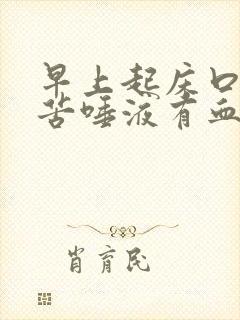 早上起床口
苦唾液有血
肖育民